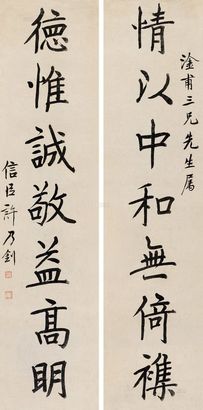 淦甫三兄先生屬
情以中和無倚襍
徳惟誠敬益髙明
信臣許乃釗